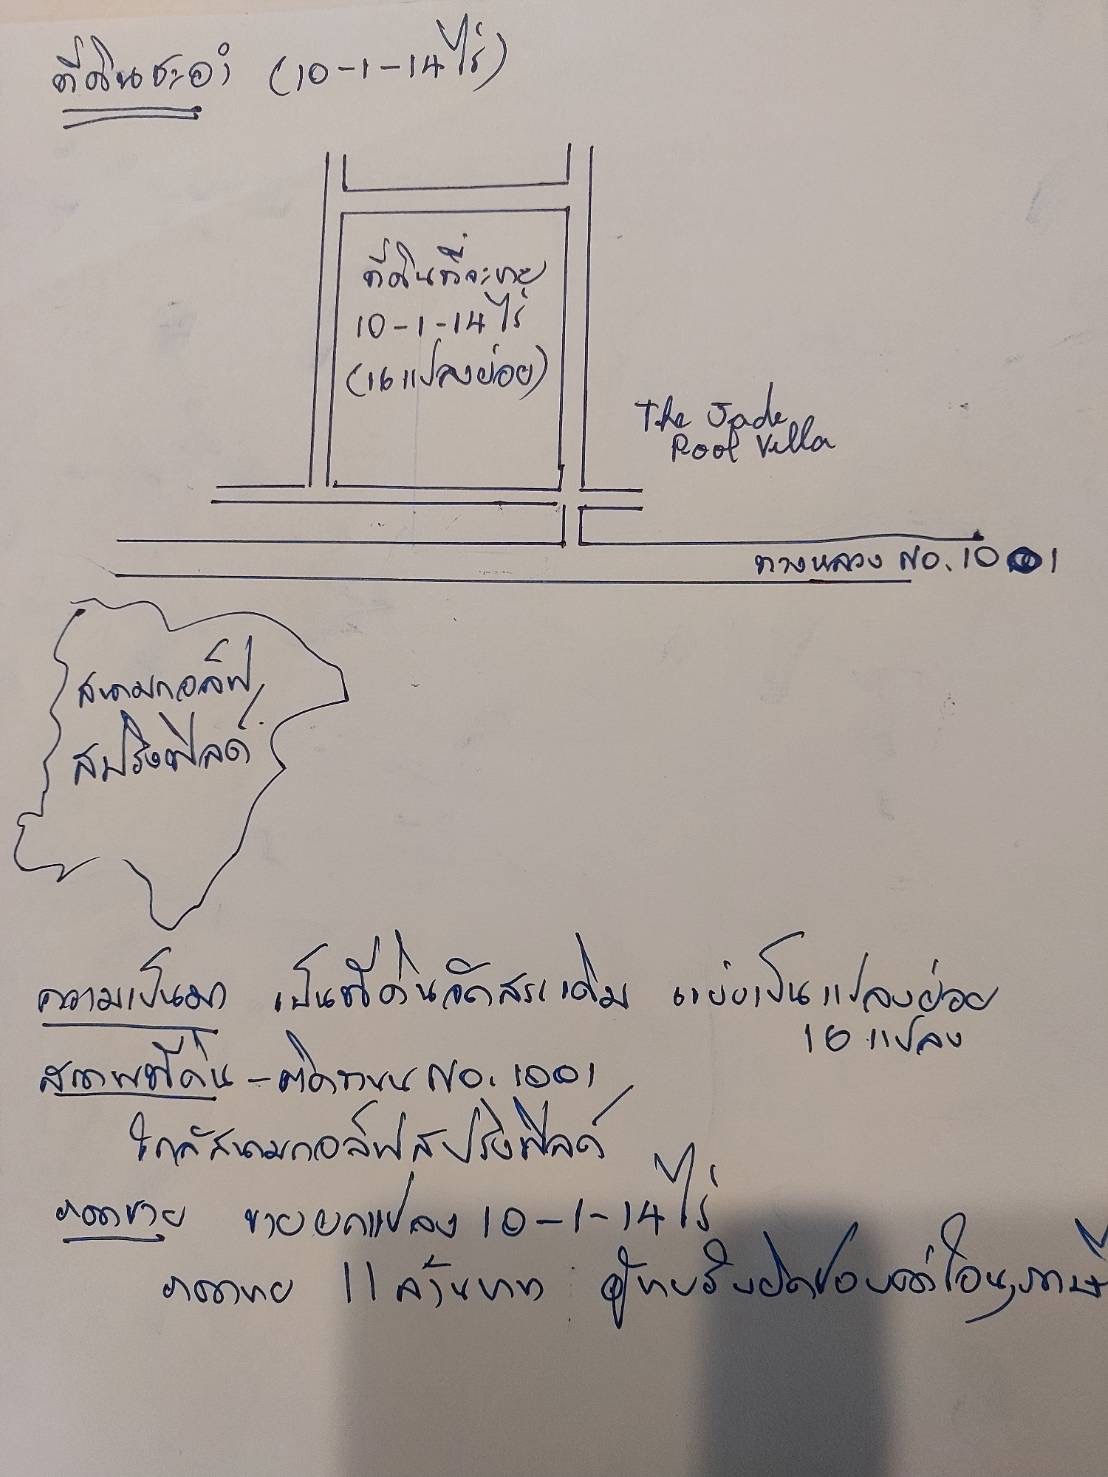 ที่ดินชะอำ (10-1-14 ไร่)
ที่ดินที่จะขาย
10-1-14 ไร่
(16 แปลงย่อย)
The Jade
Pool Villa
ทางหลวง No. 1001
สนามกอล์ฟ
สปริงฟิลด์
ความเป็นมา เป็นที่ดินจัดสรรเดิม แบ่งเป็นแปลงย่อย
16 แปลง
สภาพที่ดิน - ติดถนน No. 1001
ใกล้สนามกอล์ฟสปริงฟิลด์
ราคาขาย ขายยกแปลง 10-1-14 ไร่
ราคาขาย 11 ล้านบาท ผู้ขายรับผิดชอบค่าโอน, ภาษี